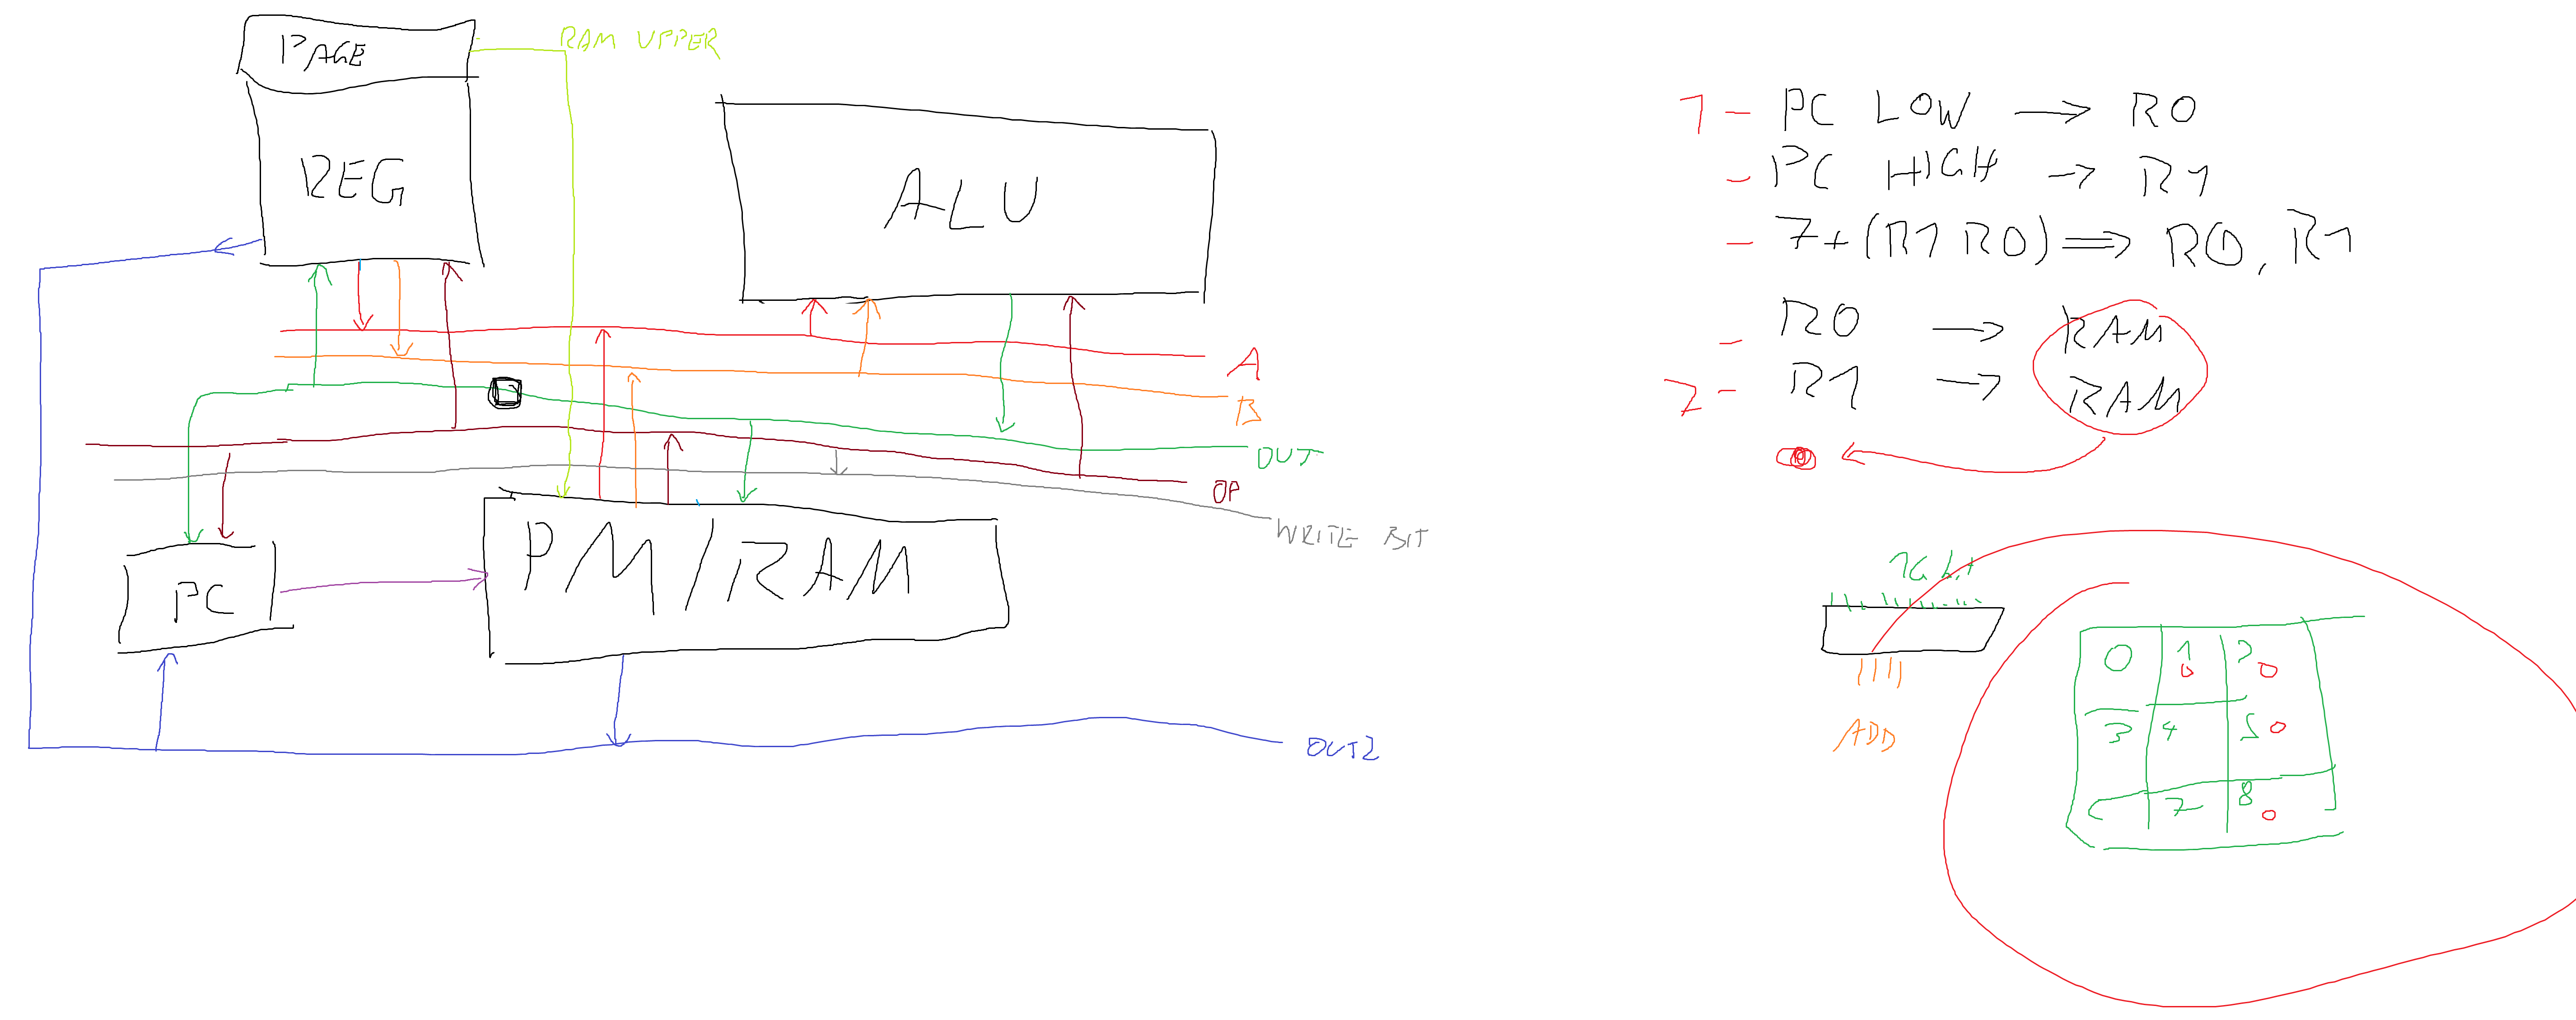 PAGE
RAM UPPER
REG
ALU
A
B
OUT
OP
WRITE BIT
PM/RAM
PC
OUT2
1 - PC LOW → R0
- PC HIGH → R1
- 7+(R1 R0) ⇒ R0, R1
- R0 → RAM
2 - R1 → RAM
ADD
0 1 2
3 4 5
7 8